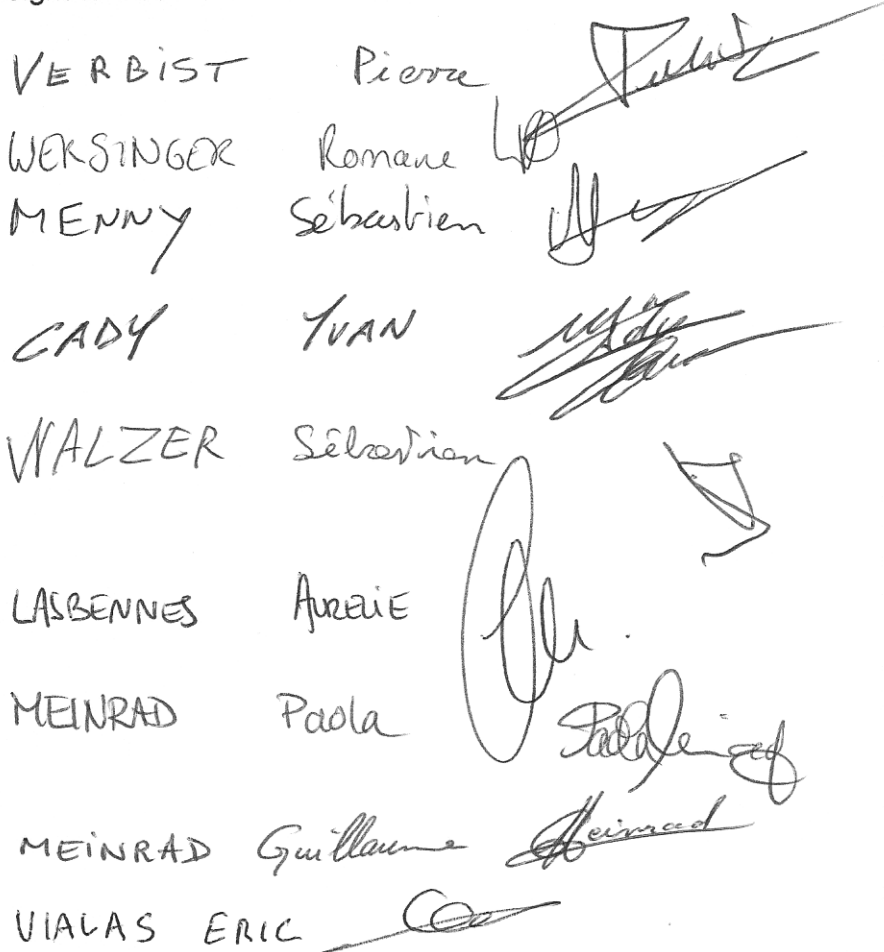 VERBIST Pierre
WERSINGER Romane
MENNY Sébastien
CADY YVAN
WALZER Sébastien
LASBENNES AURELIE
MEINRAD Paola
MEINRAD Guillaume Meinrad
VIALAS ERIC